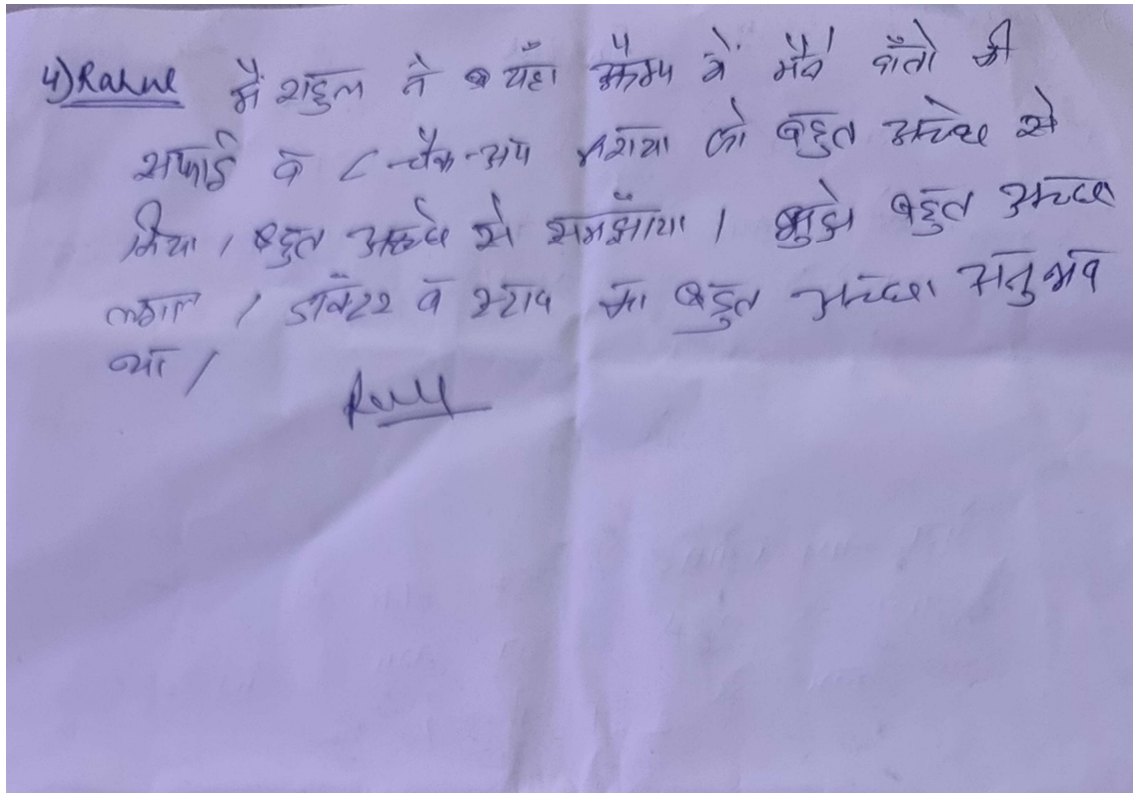 4) Rahul मैं राहुल ने यहाँ कैम्प में मैंने दाँतो की
सफाई व चैक-अप कराया जो बहुत अच्छे से
किया। बहुत अच्छे से समझाया। मुझे बहुत अच्छा
लगा। डॉक्टर व स्टाफ का बहुत अच्छा अनुभव
था।